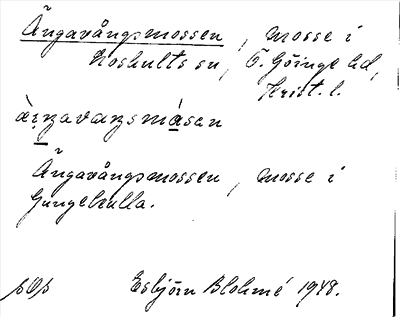 Ängavångsmossen, mosse i
Hoshults sn, Ö. Göinge hd,
Krist. l.
Ängavångsmossen, mosse i
Gungekulla.
Esbjörn Blohmé 1948.